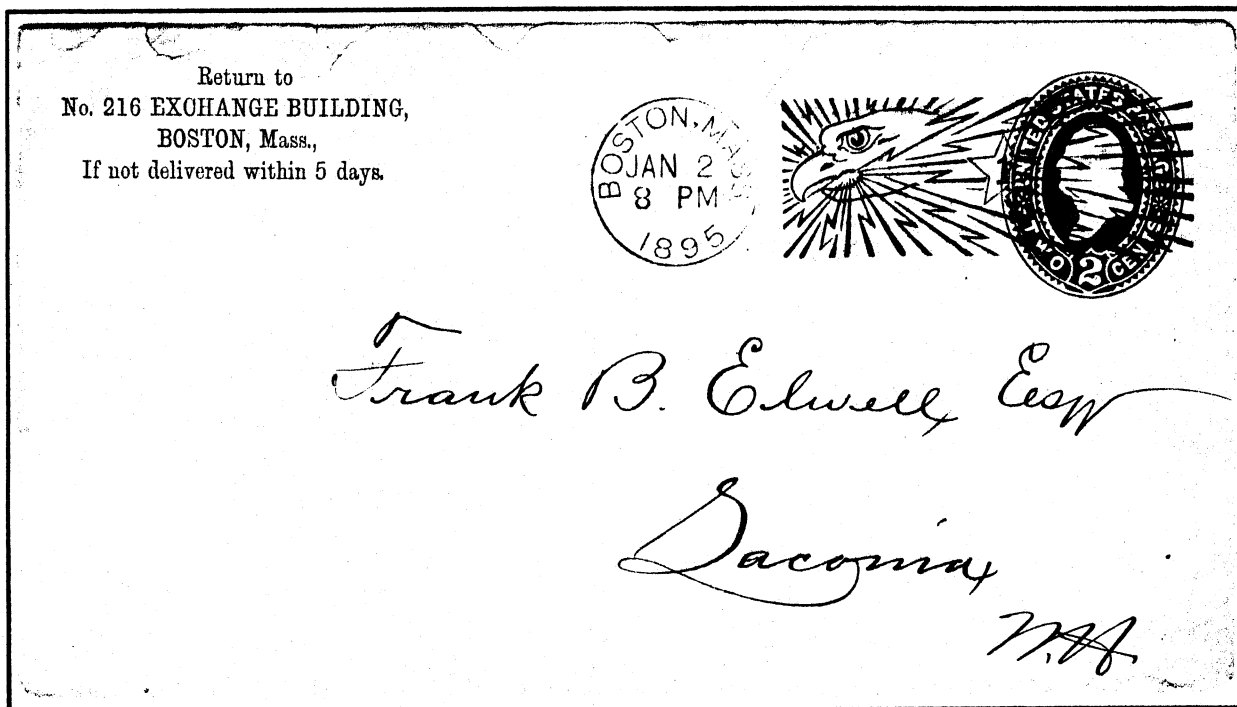 Return to
No. 216 EXCHANGE BUILDING,
BOSTON, Mass.,
If not delivered within 5 days.
BOSTON, MASS
JAN 2
8 PM
1895
UNITED STATES
TWO 2 CENTS
Frank B. Elwell, Esq
Laconia,
N.H.